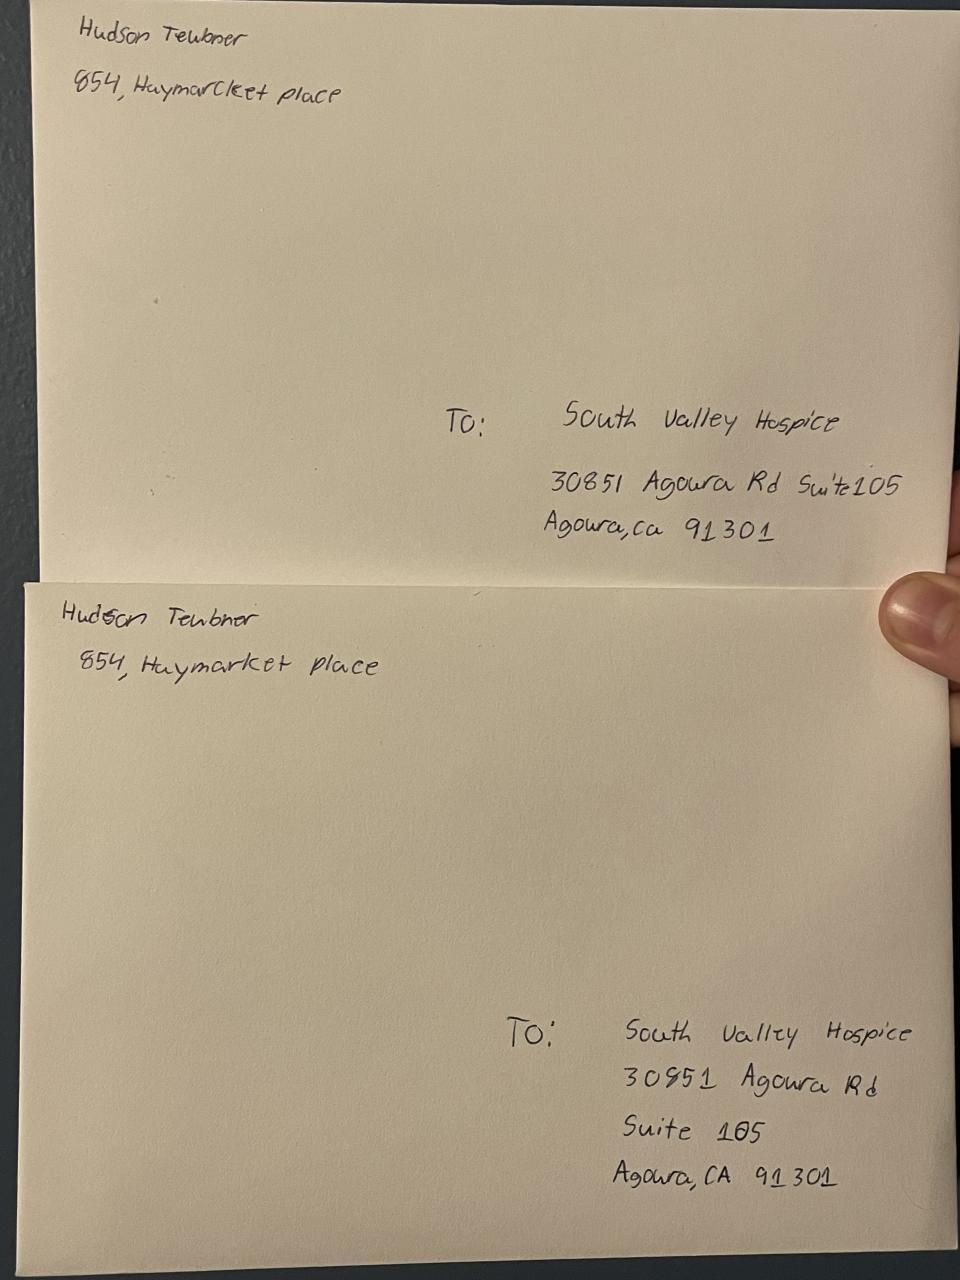 Hudson Teubner
854, Haymarcket place
To: South Valley Hospice
30851 Agoura Rd Suite 105
Agoura, ca 91301
Hudson Teubner
854, Haymarket place
To: South Valley Hospice
30851 Agoura Rd
Suite 105
Agoura, CA 91301